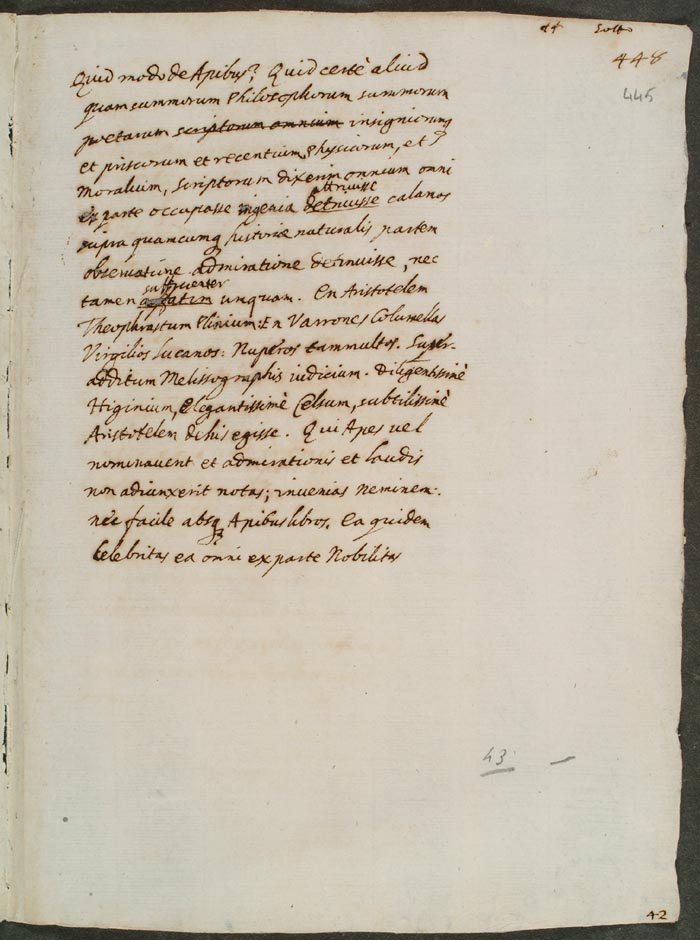 Sotto
448
445
Quid modo de Apibus? Quid certè aliud
quam summorum Philosophorum summorum
poetarum scriptorum omnium insigniorumq
et priscorum et recentium Physicorum, et
Moralium, scriptorum dixerim omnium omni
attriuisse
ex parte occupasse ingenia detriuisse calamos
supra quamcumq historiæ naturalis partem
obseruatione admiratione detinuisse, nec
sufficienter
tamen unquam. En Aristotelem
Theophrastum Plinium: En Varrones Columellas
Virgilios Lucanos: Nuperos tammultos. Super-
additum Melissographis iudicium. Diligentissimè
Higinium, Elegantissimè Celsum, subtilissimè
Aristotelem de his egisse. Qui Apes uel
nominauerit et admirationis et laudis
non adiunxerit notas; inuenias Neminem:
nec facile absq Apibus libros. Ea quidem
Celebritas ea omni ex parte Nobilitas
43
42